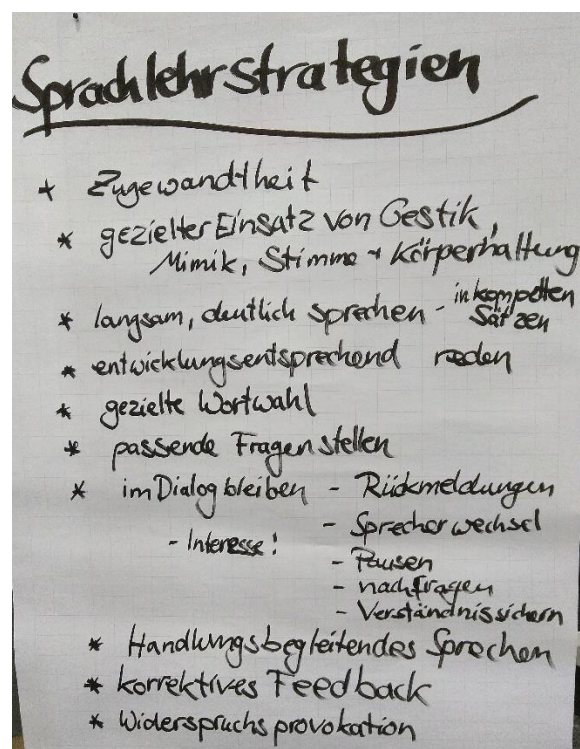 Sprachlehrstrategien
* Zugewandtheit
* gezielter Einsatz von Gestik,
Mimik, Stimme + Körperhaltung
* langsam, deutlich sprechen - in kompletten
Sätzen
* entwicklungsentsprechend reden
* gezielte Wortwahl
* passende Fragen stellen
* im Dialog bleiben - Rückmeldungen
- Sprecherwechsel
- Interesse!
- Pausen
- nachfragen
- Verständnis sichern
* Handlungsbegleitendes Sprechen
* korrektives Feedback
* Widerspruchsprovokation